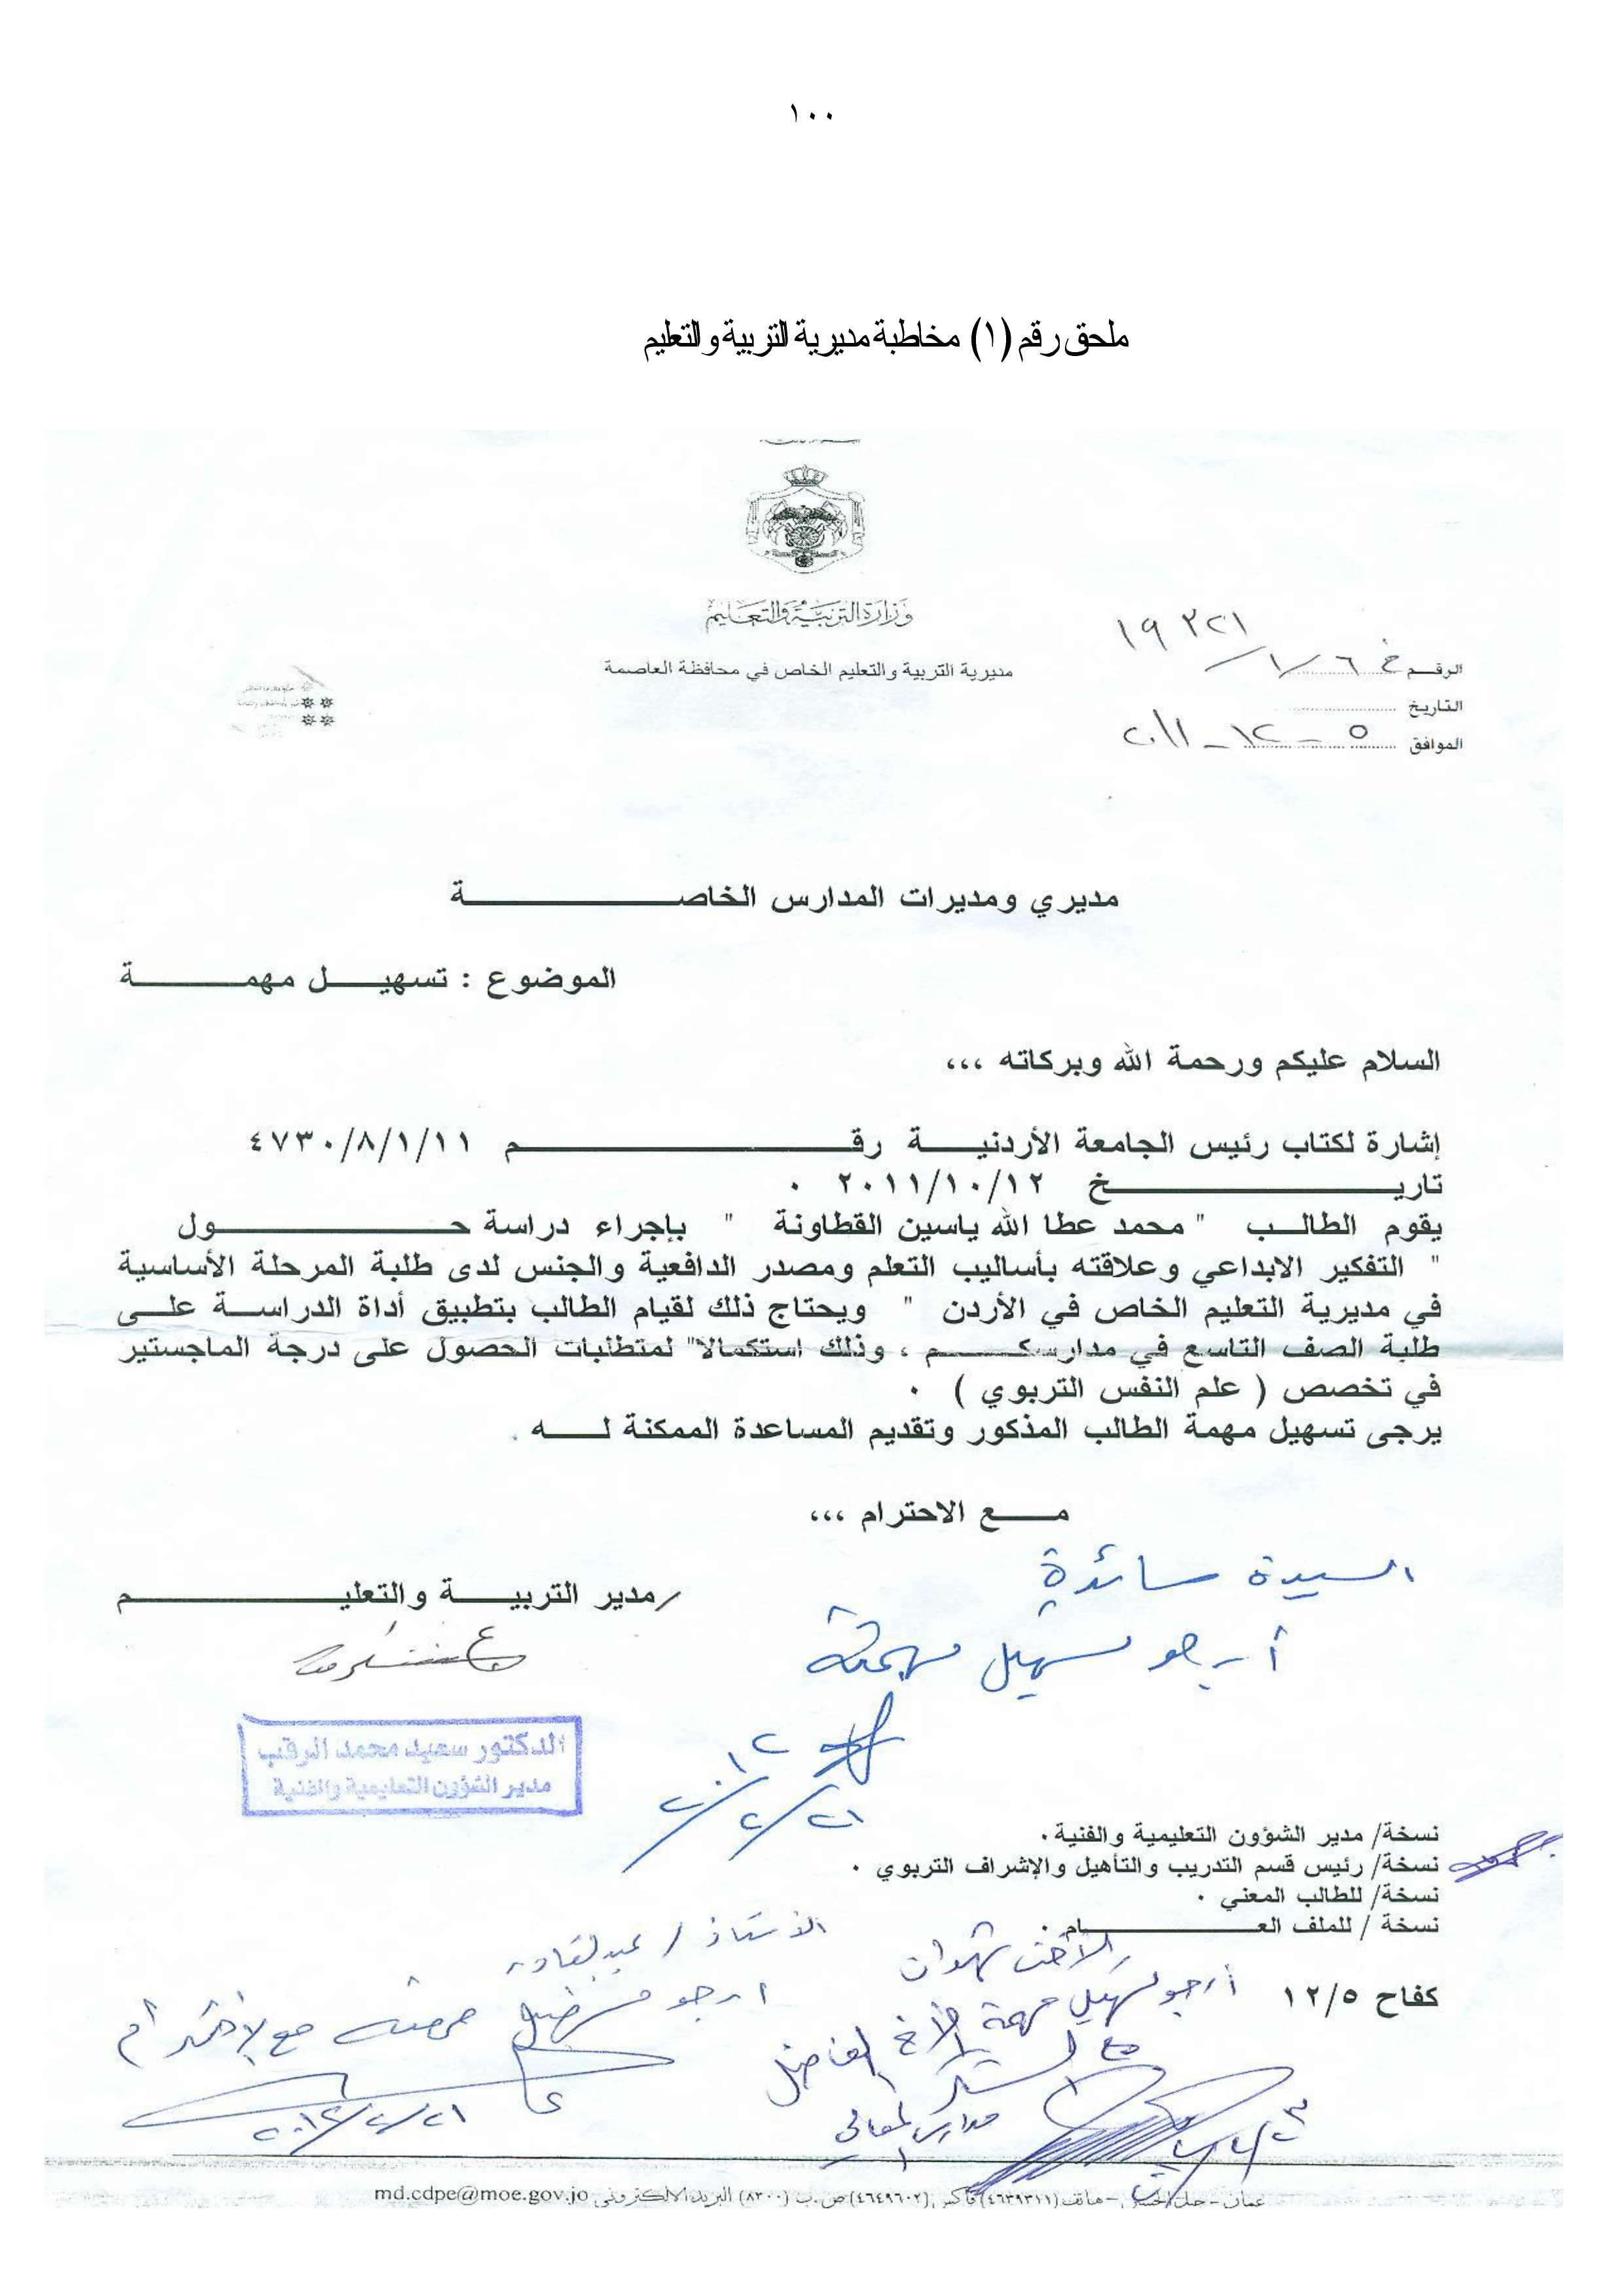 ١٠٠
ملحق رقم (١) مخاطبة مديرية التربية والتعليم
وزارة التربية والتعليم
مديرية التربية والتعليم الخاص في محافظة العاصمة
الرقم خ ١/٦/ ١٩٣٢١
التاريخ
الموافق ٥ - ١٢ - ٢٠١١
مديري ومديرات المدارس الخاصة
الموضوع : تسهيل مهمة
السلام عليكم ورحمة الله وبركاته ،،،
إشارة لكتاب رئيس الجامعة الأردنية رقم ٤٧٣٠/٨/١/١١
تاريخ ٢٠١١/١٠/١٢ .
يقوم الطالب " محمد عطا الله ياسين القطاونة " بإجراء دراسة حول
" التفكير الابداعي وعلاقته بأساليب التعلم ومصدر الدافعية والجنس لدى طلبة المرحلة الأساسية
في مديرية التعليم الخاص في الأردن " ويحتاج ذلك لقيام الطالب بتطبيق أداة الدراسة على
طلبة الصف التاسع في مدارسكم ، وذلك استكمالا" لمتطلبات الحصول على درجة الماجستير
في تخصص ( علم النفس التربوي ) .
يرجى تسهيل مهمة الطالب المذكور وتقديم المساعدة الممكنة له .
مع الاحترام ،،،
السيدة سائدة
/مدير التربية والتعليم
أرجو تسهيل مهمته
الدكتور سعيد محمد الرقب
مدير الشؤون التعليمية والفنية
٢٠١٢/٢/٢١
نسخة/ مدير الشؤون التعليمية والفنية .
نسخة/ رئيس قسم التدريب والتأهيل والإشراف التربوي .
نسخة/ للطالب المعني .
نسخة / للملف العام .
الأستاذ / عبدالقادر
ارجو تسهيل مهمته مع الاحترام
٢٠١٢/٢/٢١
الأخت
أرجو تسهيل مهمة الأخ الفاضل
مع الشكر
كفاح ١٢/٥
عمان - جبل الحسين - هاتف (٤٦٣٩٣١١) فاكس (٤٦٤٩٦٠٢) ص.ب (٨٣٠٠) البريد الالكتروني md.cdpe@moe.gov.jo